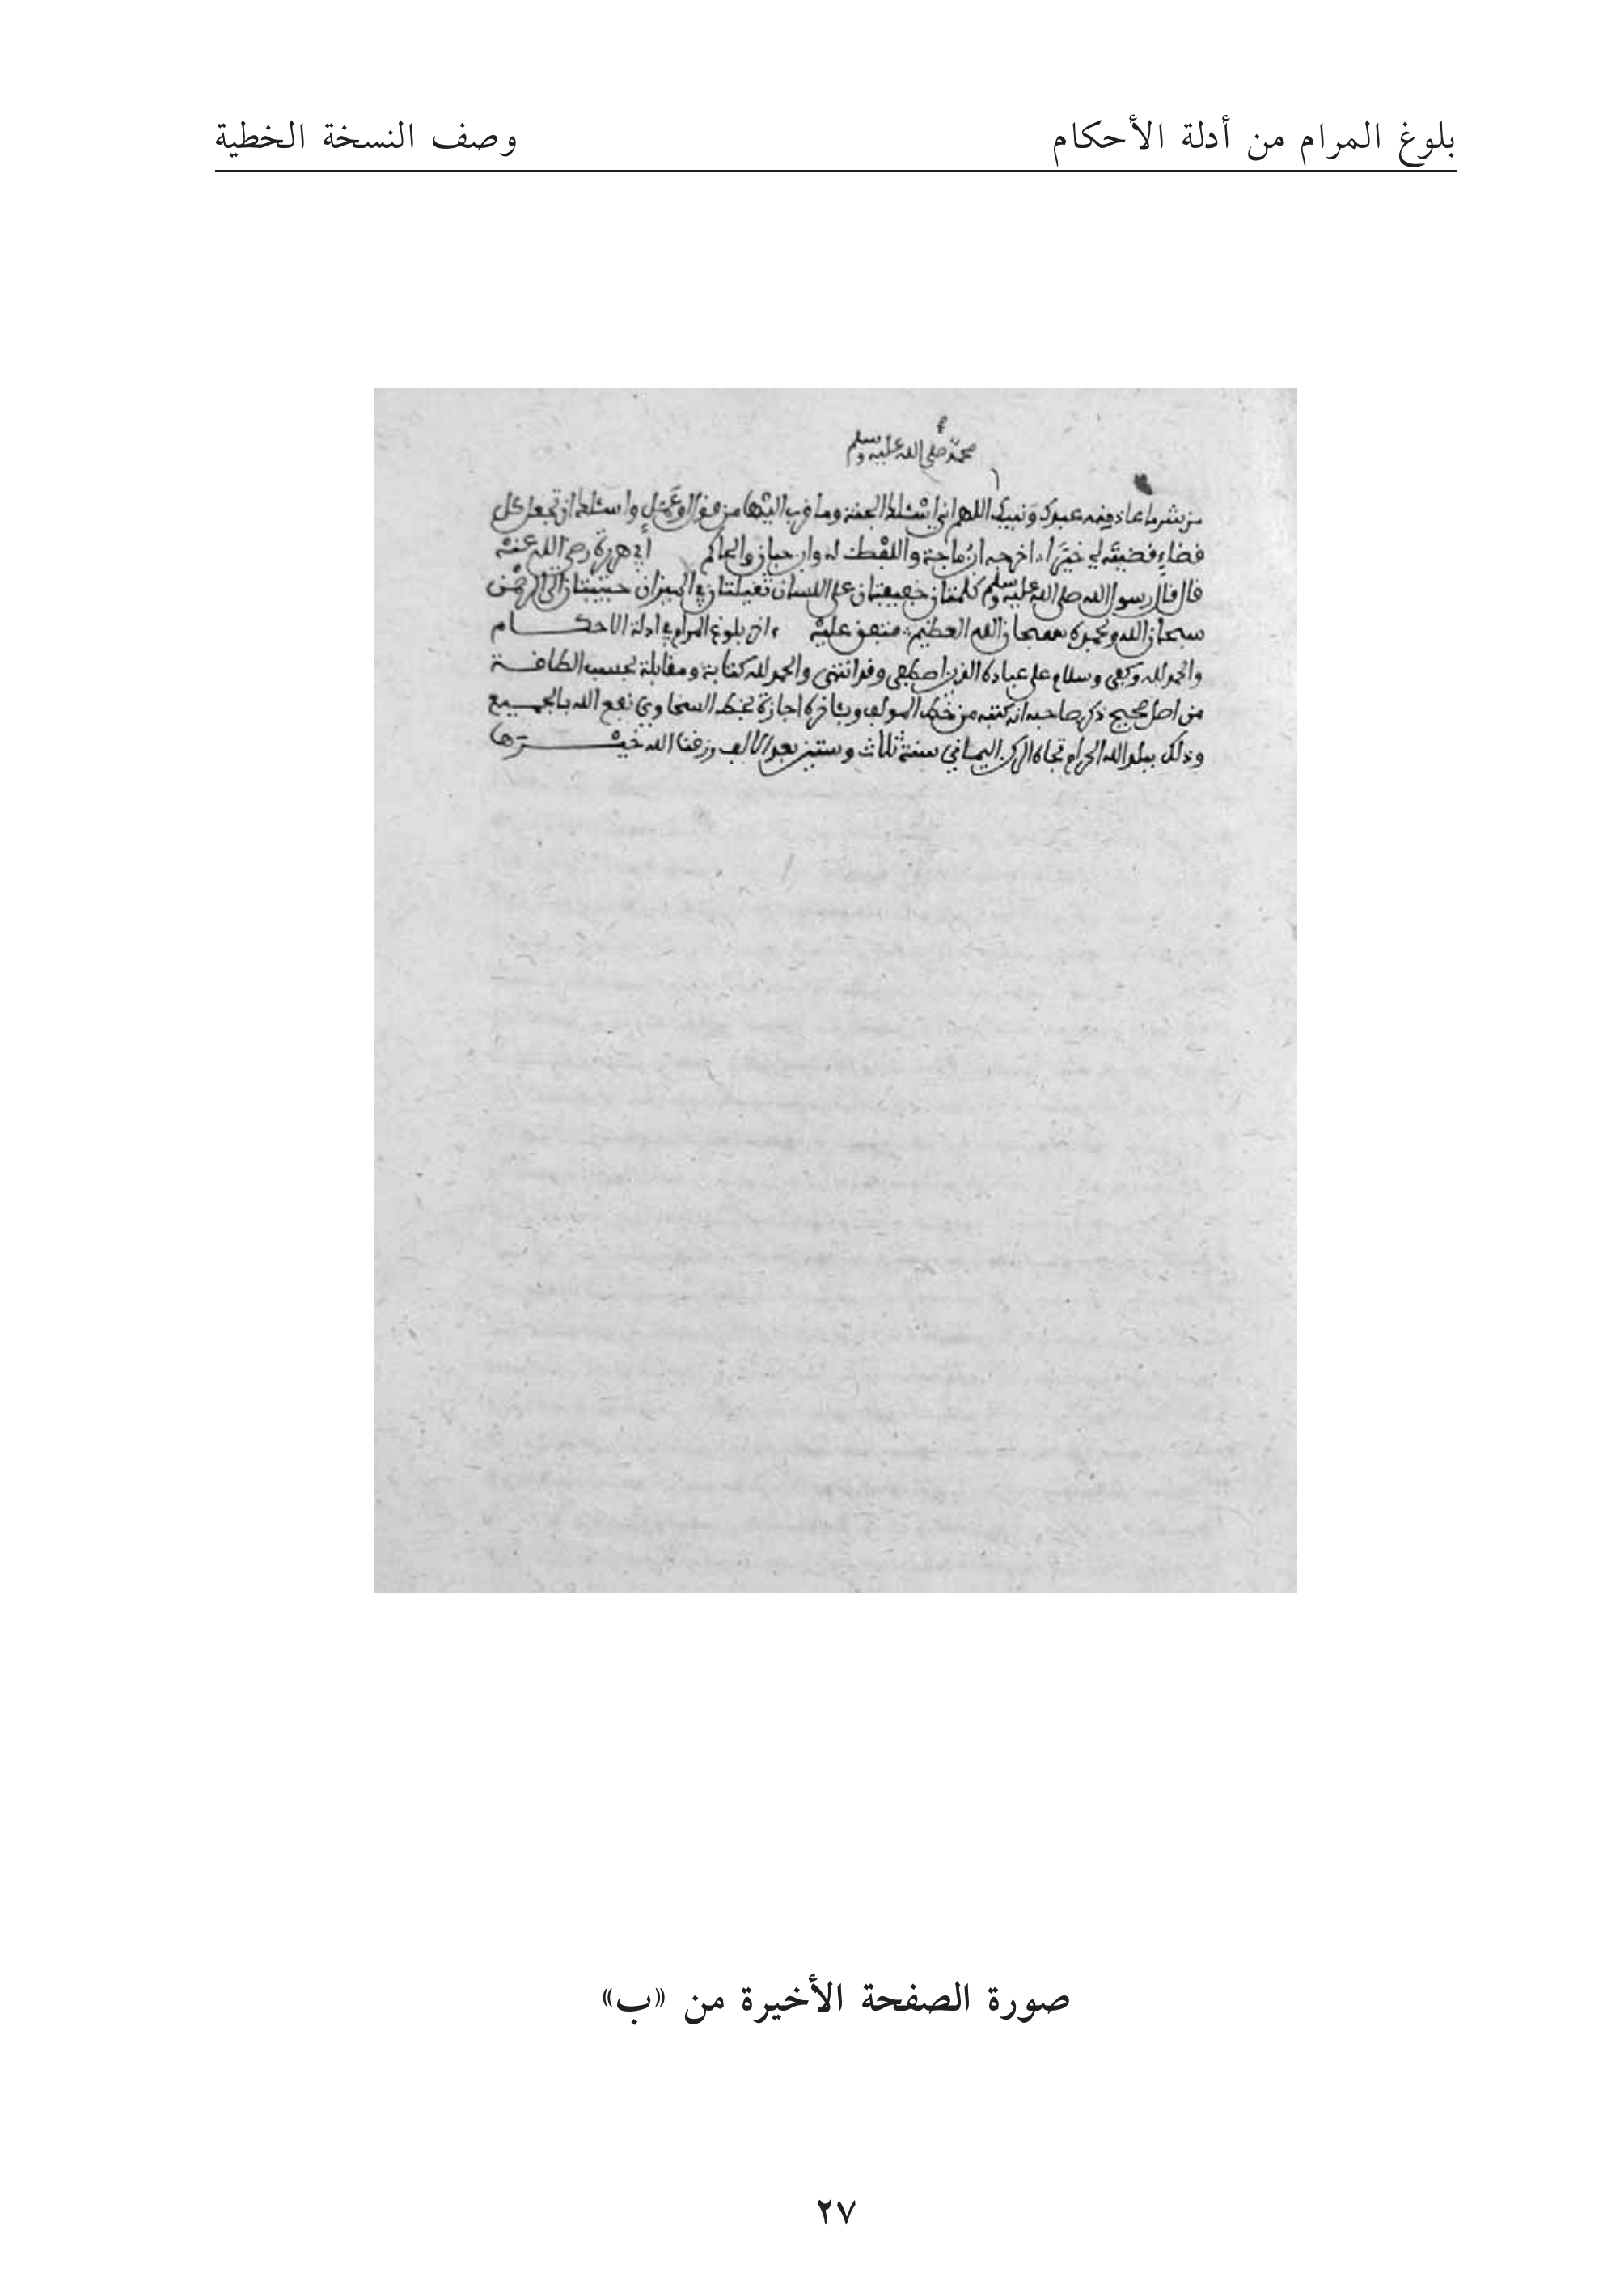 بلوغ المرام من أدلة الأحكام
وصف النسخة الخطية
محمد صلى الله عليه وسلم
من شر ما عاذ منه عبدك ونبيك اللهم اني اسئلك الجنة وما قرب اليها من قول او عمل واسئلك ان تجعل كل
قضاء قضيته لي خيرا اخرجه ابن ماجة واللفظ له وابن حبان والحاكم أبي هريرة رضي الله عنه
قال قال رسول الله صلى الله عليه وسلم كلمتان خفيفتان على اللسان ثقيلتان في الميزان حبيبتان الى الرحمن
سبحان الله وبحمده سبحان الله العظيم متفق عليه اخر بلوغ المرام في ادلة الاحكام
والحمد لله وكفى وسلام على عباده الذين اصطفى وقد انتهى والحمد لله كتابة ومقابلة بحسب الطاقة
من اصل صحيح ذكر صاحبه انه كتبه من خط المولف وبئاخره اجازة بخط السخاوي نفع الله بالجميع
وذلك ببلد الله الحرام تجاه الركن اليماني سنة ثلاث وستين بعد الالف رزقنا الله خيرها
صورة الصفحة الأخيرة من «ب»
٢٧